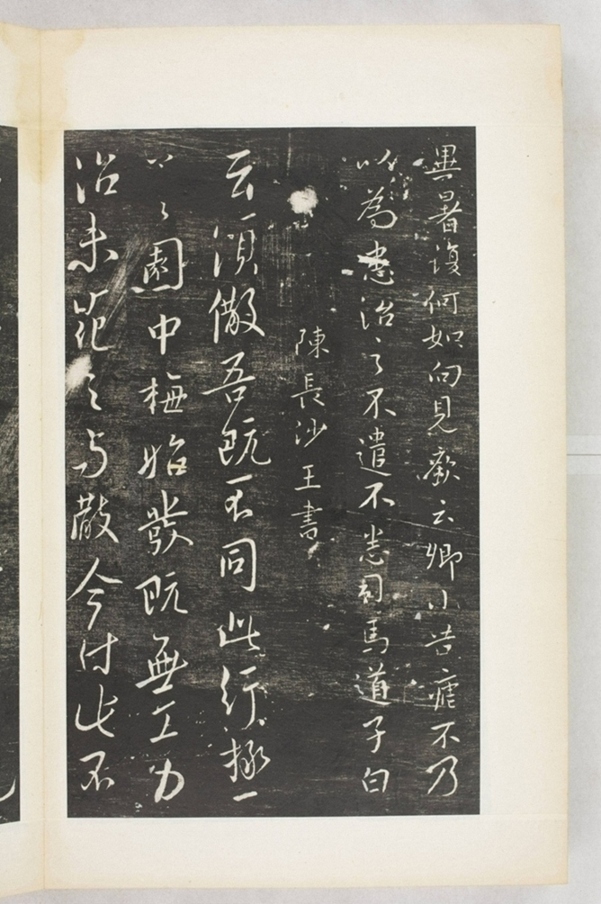 異暑復何如向見歡云卿小告瘧不乃
以為患治之不遣不悉司馬道子白
陳長沙王書
云須散吾既不同此行極
園中梅始發既無工力
治未範之与散今付此不